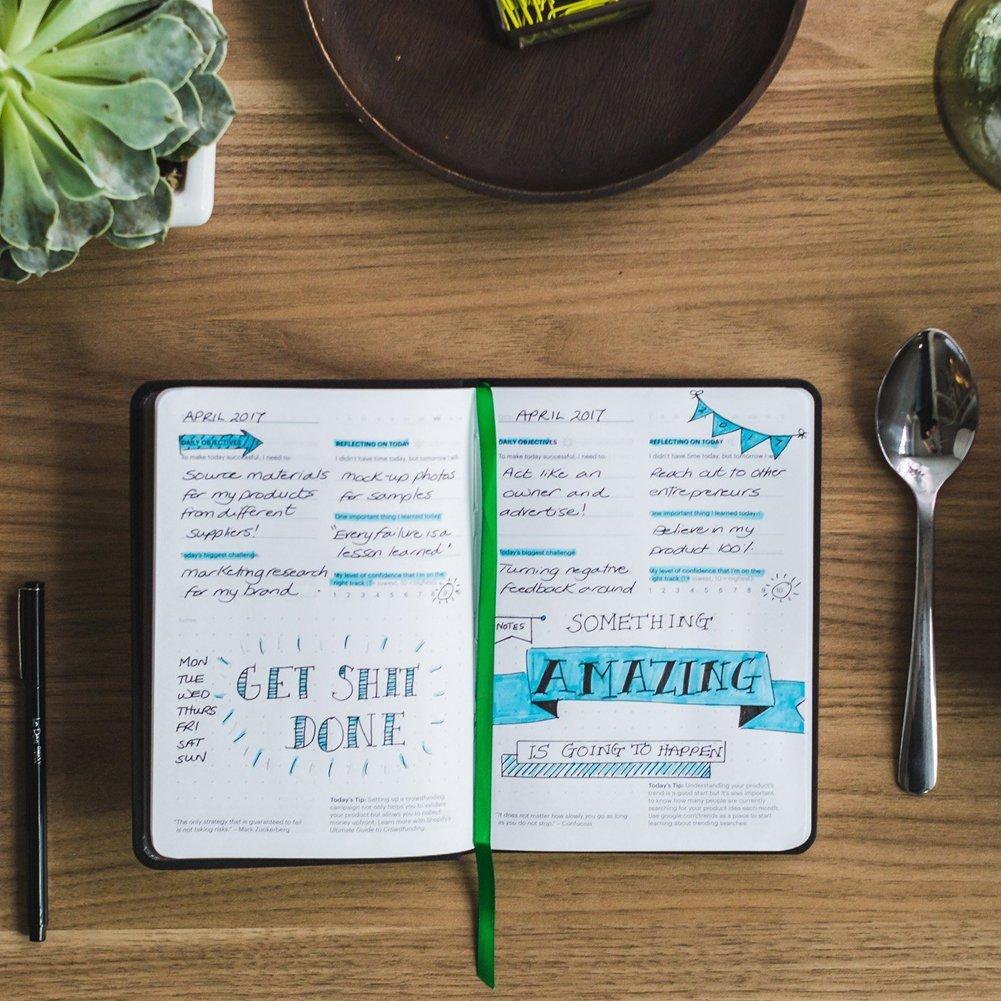 APRIL 2017
DAILY OBJECTIVES
To make today successful, I need to:
Source materials
for my products
from different
suppliers!
Today's biggest challenge
marketing research
for my brand.
REFLECTING ON TODAY
I didn't have time today, but tomorrow I will
mock-up photos
for samples
One important thing I learned today
"Every failure is a
lesson learned"
My level of confidence that I'm on the
right track (1 = lowest, 10 = highest)
1 2 3 4 5 6 7 8 9
Notes
MON
TUE
WED
THURS
FRI
SAT
SUN
GET SHIT
DONE
"The only strategy that is guaranteed to fail
is not taking risks." – Mark Zuckerberg
Today's Tip: Setting up a crowdfunding
campaign not only helps you to validate
your product but allows you to collect
money upfront. Learn more with Shopify's
Ultimate Guide to Crowdfunding.
APRIL 2017
DAILY OBJECTIVES
To make today successful, I need to:
Act like an
owner and
advertise!
Today's biggest challenge
Turning negative
feedback around
REFLECTING ON TODAY
I didn't have time today, but tomorrow I will
Reach out to other
entrepreneurs
One important thing I learned today
Believe in my
product 100%
My level of confidence that I'm on the
right track (1 = lowest, 10 = highest)
1 2 3 4 5 6 7 8 9 10
NOTES
SOMETHING
AMAZING
IS GOING TO HAPPEN
"It does not matter how slowly you go as long
as you do not stop." – Confucius
Today's Tip: Understanding your product's
trend is a good start but it's also important
to know how many people are currently
searching for your product idea each month.
Use google.com/trends as a place to start
learning about trending searches.